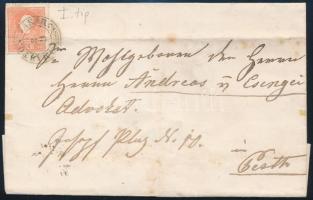 I. tip
An
Wohlgeboren den Herrn
Herrn Andreas v Csengei
Advokat.
Josefs Platz No 10.
in
Pesth